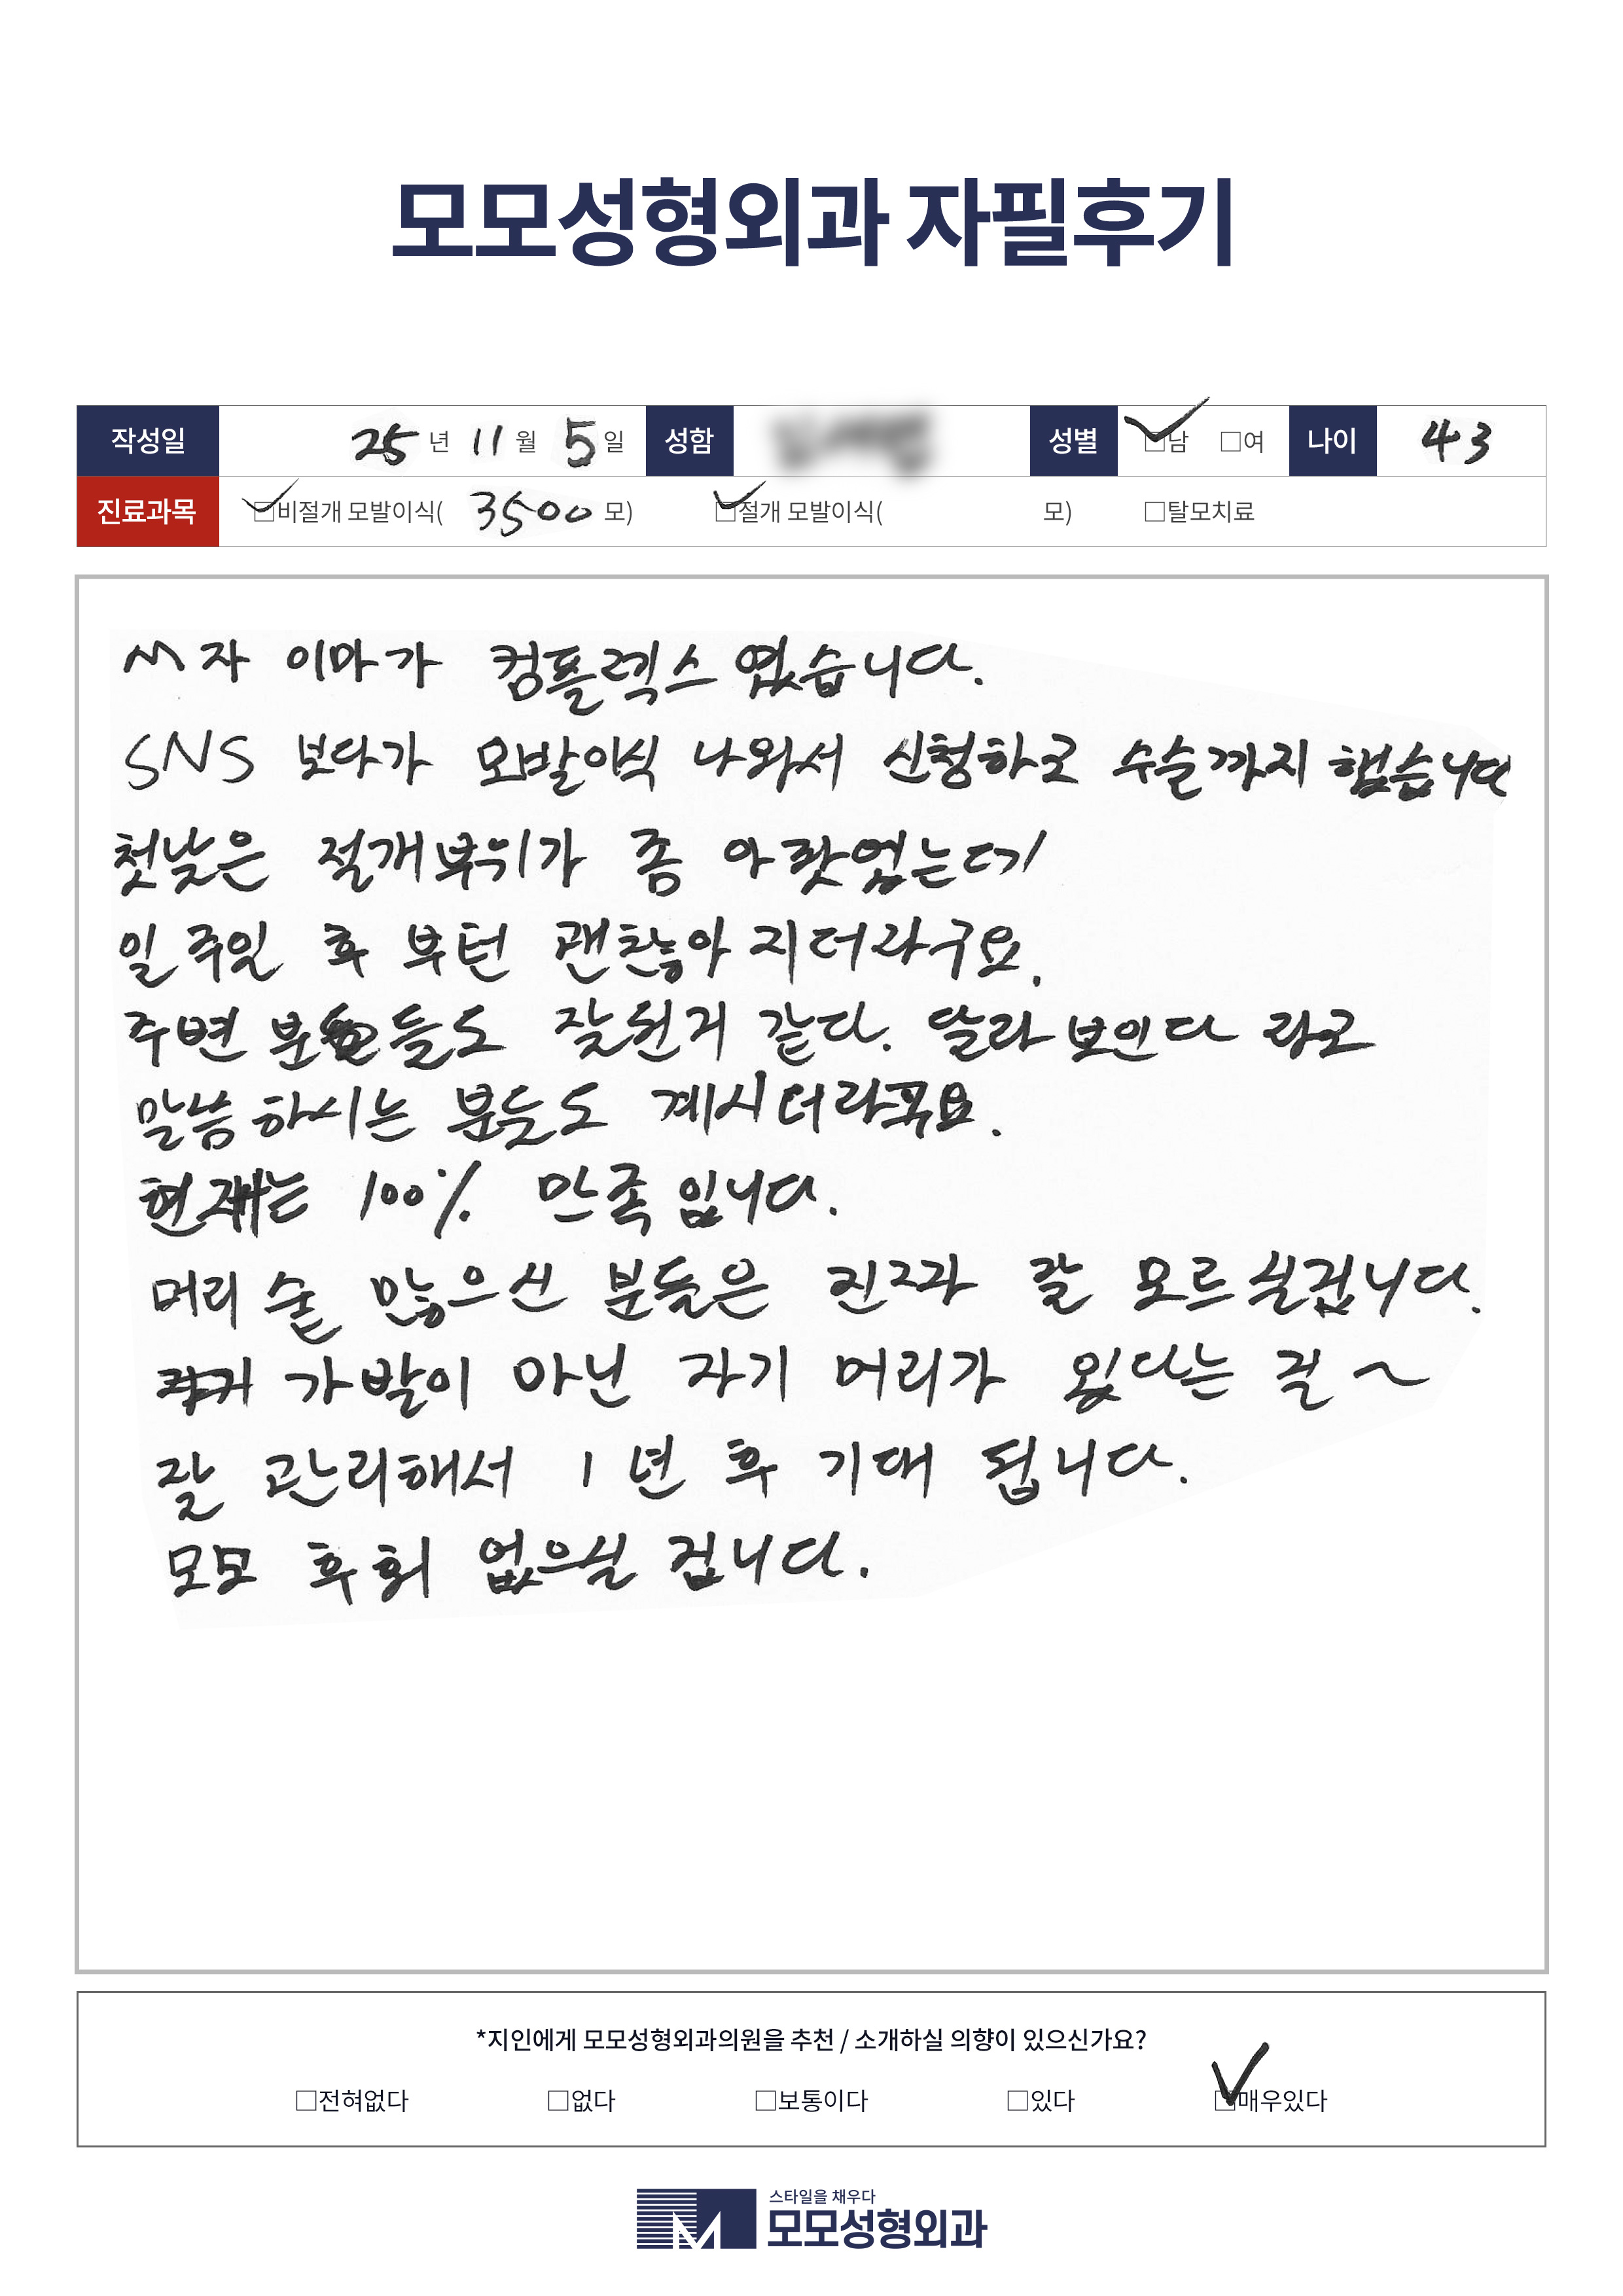 모모성형외과 자필후기
작성일 25 년 11 월 5 일 성함 성별 □남 □여 나이 43
진료과목 □비절개 모발이식( 3500 모) □절개 모발이식( 모) □탈모치료
M자 이마가 컴플렉스 였습니다.
SNS 보다가 모발이식 나와서 신청하고 수술까지 했습니다
첫날은 절개부위가 좀 아팠었는데
일주일 후 부턴 괜찮아 지더라구요.
주변 분들도 잘된거 같다. 달라 보인다 라고
말씀하시는 분들도 계시더라구요.
현재는 100% 만족입니다.
머리 숱 많으신 분들은 진그과 잘 모르실겁니다.
가발이 아닌 자기 머리가 있다는 걸~
잘 관리해서 1년 후 기대 됩니다.
모모 후회 없으실 겁니다.
*지인에게 모모성형외과의원을 추천 / 소개하실 의향이 있으신가요?
□전혀없다 □없다 □보통이다 □있다 □매우있다
스타일을 채우다
모모성형외과